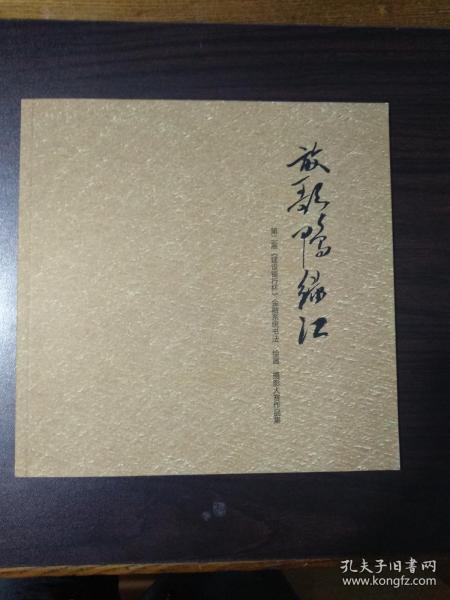 放歌鸭绿江
第二届《建设银行杯》金融系统书法 绘画 摄影大赛作品集
孔夫子旧书网
www.kongfz.com